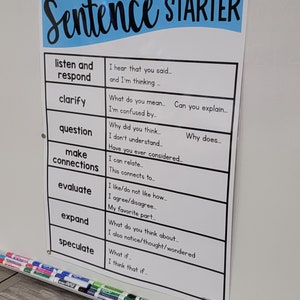 Sentence STARTER
listen and respond
I hear that you said...
and I'm thinking ...
clarify
What do you mean... Can you explain...
I'm confused by...
question
Why did you think... Why does...
I don't understand...
Have you ever considered...
make connections
I can relate...
This connects to...
evaluate
I like/do not like how...
I agree/disagree...
My favorite part...
expand
What do you think about...
I also notice/thought/wondered
speculate
What if...
I think that if...